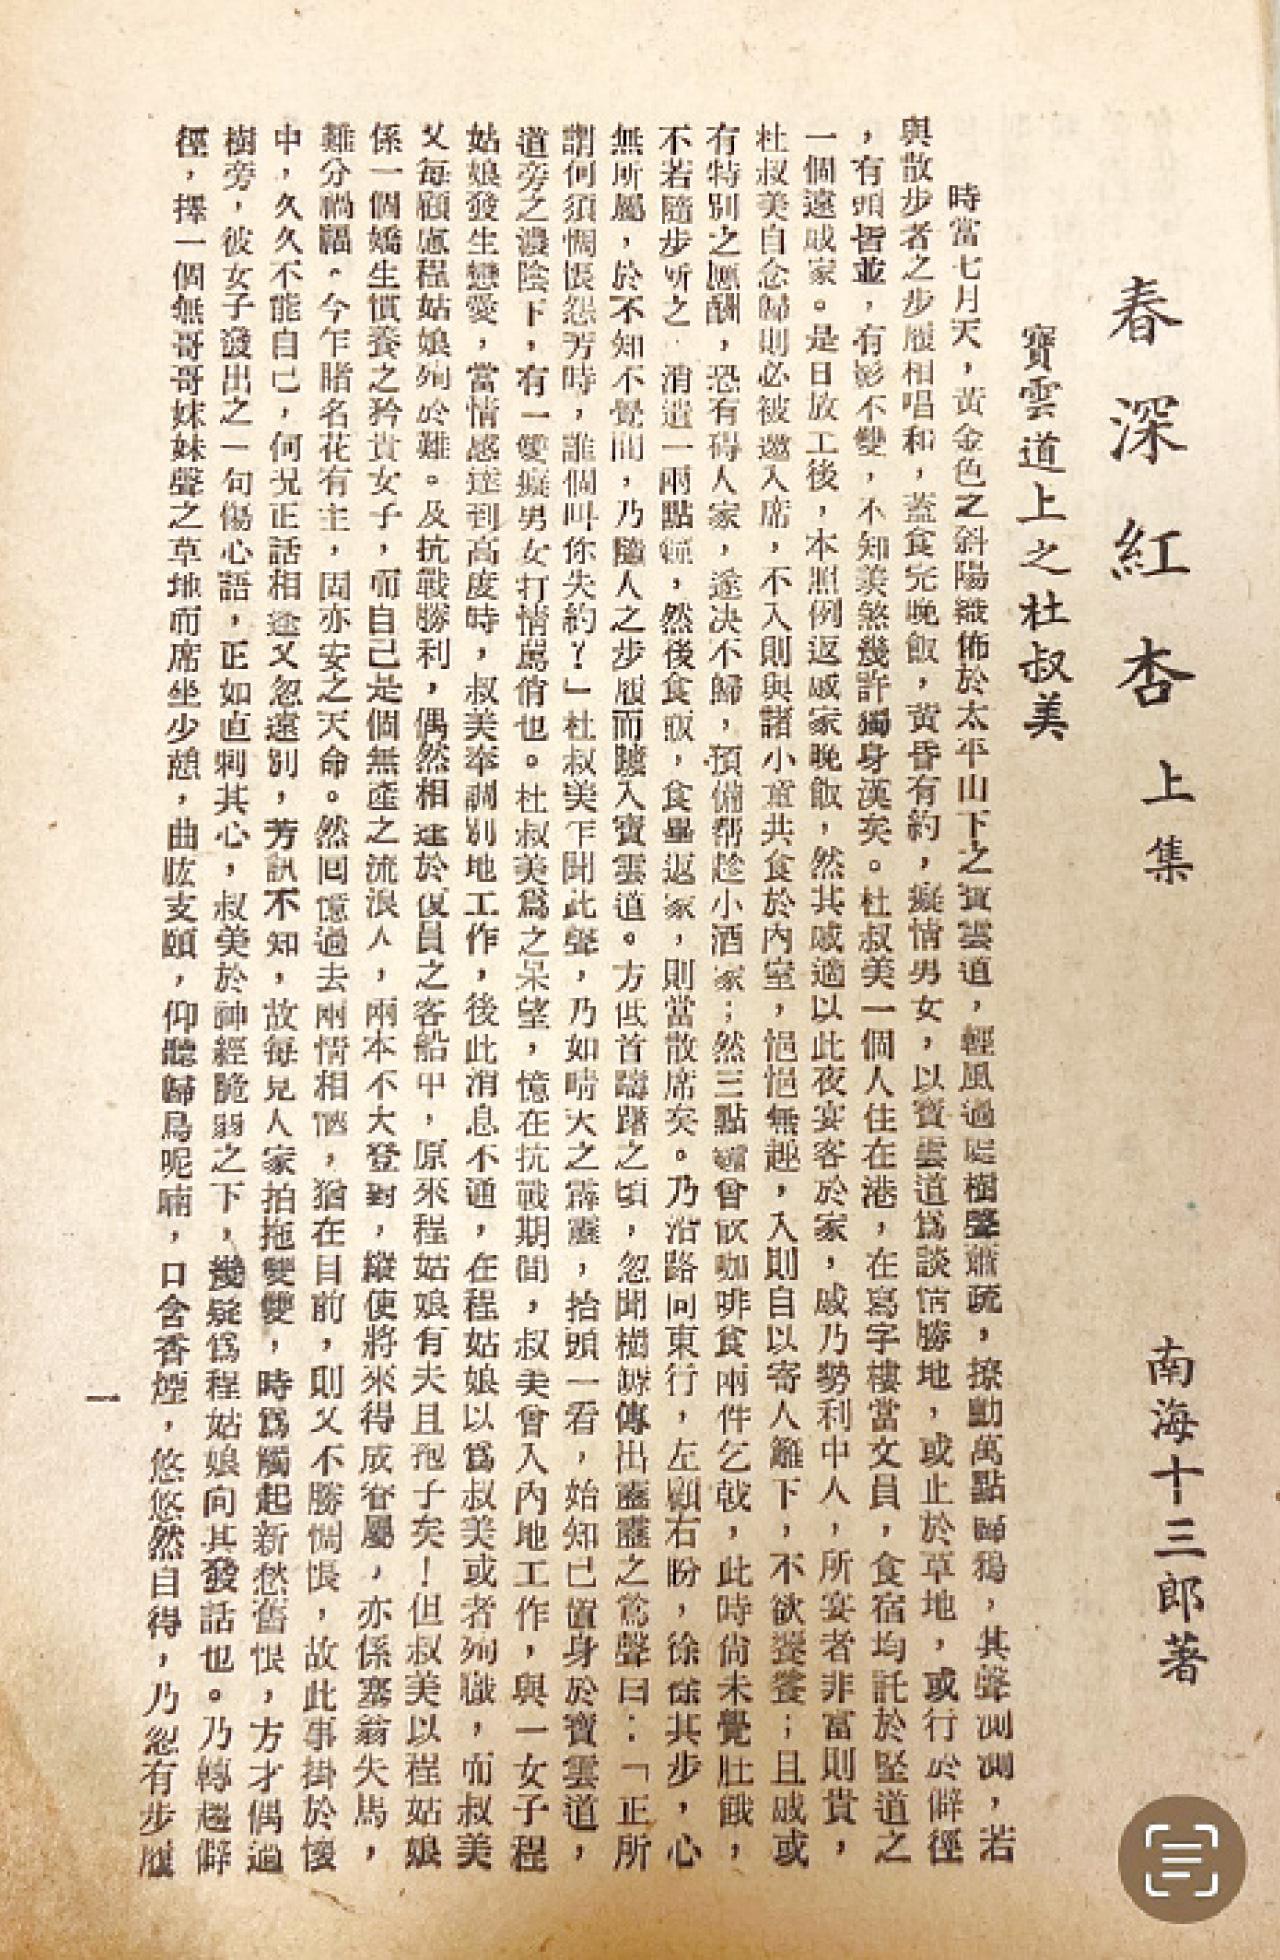 春深紅杏 上集
南海十三郎著
寶雲道上之杜叔美
時當七月天，黃金色之斜陽織佈於太平山下之寶雲道，輕風過處樹聲蕭疏，撩動萬點歸鴉，其聲測測，若
與散步者之步履相唱和，蓋食完晚飯，黃昏有約，癡情男女，以寶雲道為談情勝地，或止於草地，或行於僻徑
，有頭皆並，有影不雙，不知羨煞幾許獨身漢矣。杜叔美一個人住在港，在寫字樓當文員，食宿均託於堅道之
一個遠戚家。是日放工後，本照例返戚家晚飯，然其戚適以此夜宴客於家，戚乃勢利中人，所宴者非富則貴，
杜叔美自念歸則必被邀入席，不入則與諸小童共食於內室，悒悒無趣，入則自以寄人籬下，不欲饕餮；且戚或
有特別之應酬，恐有碍人家，遂决不歸，預備帮趁小酒家；然三點鐘曾飲咖啡食兩件乞戟，此時尙未覺肚餓，
不若隨步所之 消遣一兩點鐘，然後食飯，食畢返家，則當散席矣。乃沿路向東行，左顧右盼，徐徐其步，心
無所屬，於不知不覺間，乃隨人之步履而踱入寶雲道。方低首躊躇之頃，忽聞樹𨻶傳出嚦嚦之鶯聲曰：「正所
謂何須惆悵怨芳時，誰個叫你失約丫！」杜叔美乍聞此聲，乃如晴天之霹靂，抬頭一看，始知已置身於寶雲道，
道旁之濃陰下，有一雙癡男女打情罵俏也。杜叔美為之呆望，憶在抗戰期間，叔美曾入內地工作，與一女子程
姑娘發生戀愛，當情感達到高度時，叔美奉調別地工作，後此消息不通，在程姑娘以為叔美或者殉職，而叔美
又每顧慮程姑娘殉於難。及抗戰勝利，偶然相逢於復員之客船中，原來程姑娘有夫且抱子矣！但叔美以程姑娘
係一個嬌生慣養之矜貴女子，而自己是個無產之流浪人，兩本不大登對，縱使將來得成眷屬，亦係塞翁失馬，
難分禍福。今乍睹名花有主，固亦安之天命。然回憶過去兩情相愜，猶在目前，則又不勝惆悵，故此事掛於懷
中，久久不能自已，何况正話相逢又忽遠別，芳訊不知，故每見人家拍拖雙雙，時為觸起新愁舊恨，方才偶過
樹旁，彼女子發出之一句傷心語，正如直刺其心，叔美於神經脆弱之下，幾疑為程姑娘向其發話也。乃轉趨僻
徑，擇一個無哥哥妹妹聲之草地而席坐少憩，曲肱支頤，仰聽歸鳥呢喃，口含香煙，悠悠然自得，乃忽有步履
一